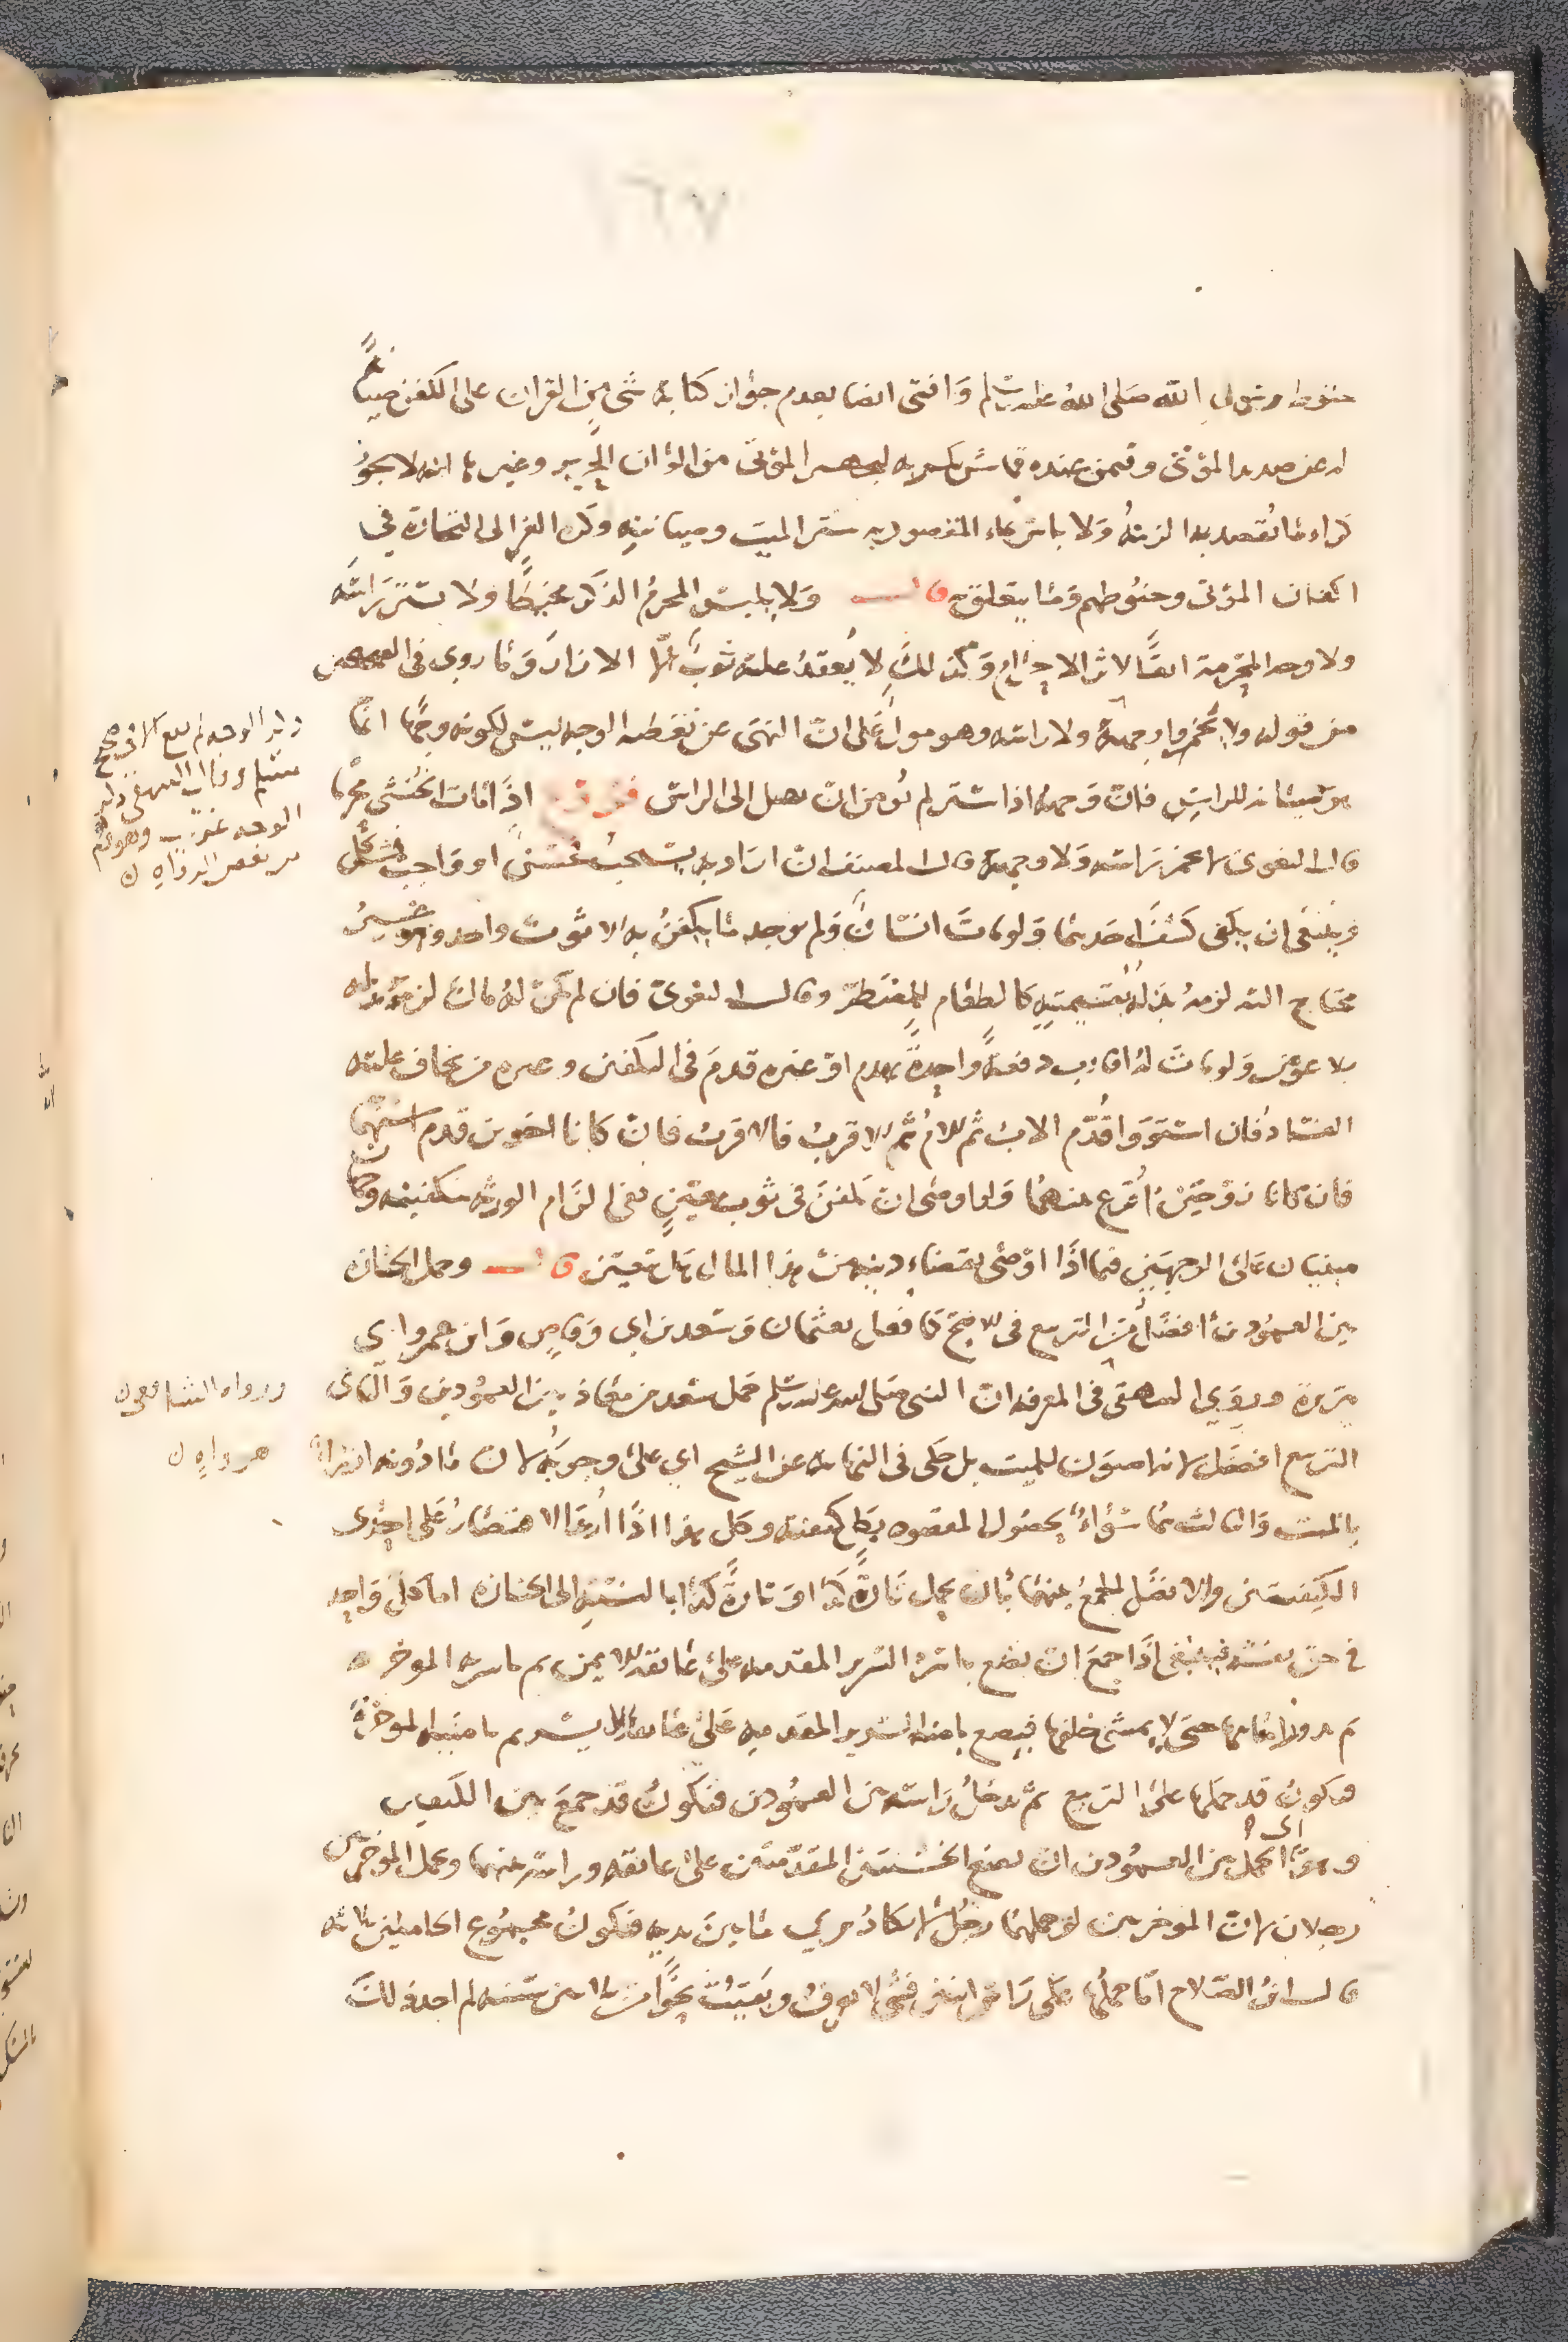 ١٦٧
حنوط رسول الله صلى الله عليه وسلم وافتى ايضا بعدم جواز كتابة شي من القران على الكفن صيانة
له عن صديد الموتى وفيمن عنده قماش من الوان الحرير وغيرها انه لا يجوز
كراء ما يقصد به الزينة ولا باس بكراء المقصود به ستر الميت وصيانته وكره الغزالي التجارة في
اكفان الموتى وحنوطهم وما يتعلق به قال ولا يلبس المحرم الذكر مخيطا ولا يستر راسه
ولا وجه المحرمة ابقاء لاثر الاحرام وكذلك لا يعقد عليه ثوب الا الازار وما روي في الصحيحين
من قوله ولا تخمروا وجهه ولا راسه وهو على ان النهي عن تغطية الوجه ليس لكونه وجها انما
هو صيانة للراس فان وجهه اذا ستر لم يؤمن ان يصل الى الراس فرع اذا مات الخنثى محرما
قال البغوي لا يخمر راسه ولا وجهه قال المصنف ان اراد به يستحب فحسن او واجب فمشكل
وينبغي ان يكفي كشف احدهما ولو مات انسان ولم يوجد ما يكفن به الا ثوب واحد وهو
محتاج اليه لزمه بذله بقيمته كالطعام للمضطر وقال البغوي فان لم يكن له مال لزمه بذله
بلا عوض ولو مات له اقارب دفعة واحدة بهدم او غيره قدم في التكفين وغيره من يخاف عليه
الفساد فان استووا قدم الاب ثم الام ثم الاقرب فالاقرب فان كانا اخوين قدم اسنهما
فان كانا زوجتين اقرع بينهما ولو اوصى ان يكفن في ثوب معين ففي الزام الورثة تكفينه وجهان
مبنيان على الوجهين فيما اذا اوصى بقضاء دينه من هذا المال هل يتعين قال وحمل الجنازة
بين العمودين افضل من التربيع في الاصح كما فعل بعثمان وسعد بن ابي وقاص وابن عمر وابي
هريرة وروي البيهقي في المعرفة ان النبي صلى الله عليه وسلم حمل سعد بن معاذ بين العمودين والثاني
التربيع افضل لانها اصون للميت بل حكى في النهاية عن الشيخ ابي علي وجوبه لان ما دونه ازراء
بالميت والثالث هما سواء لحصول المقصود بكل كيفية وكل هذا اذا اراد الاقتصار على احدى
الكيفيتين والافضل الجمع بينهما بان يحمل تارة كذا وتارة كذا بالنسبة الى الجنازة اما كل واحد
في حق نفسه فينبغي اذا جمع ان يضع ياسرة السرير المقدمة على عاتقه الايمن ثم ياسرته الموخرة
ثم يدور امامها حتى لا يمشي خلفها فيضع يامنة السرير المقدمة على عاتقه الايسر ثم يامنته الموخرة
فيكون قد حملها على التربيع ثم يدخل راسه بين العمودين فيكون قد جمع بين الكيفيتين
وهو اي الحمل بين العمودين ان يضع الخشبتين المقدمتين على عاتقه وراسه بينهما ويحمل الموخرتين
رجلان لان الموخرتين لو حملهما رجل لا يكاد يرى ما بين يديه فيكون مجموع الحاملين ثلاثة
قال ابن الصلاح اما حملها على راس اثنين فشي لا يعرف وبقيت نحوا من ثلاثين سنة لم اجد ذلك
ذكر الوجه لم يقع الا في صحيح
مسلم وقال البيهقي ذكر
الوجه غريب وهو وهم
من بعض الرواه
ورواه الشافعي